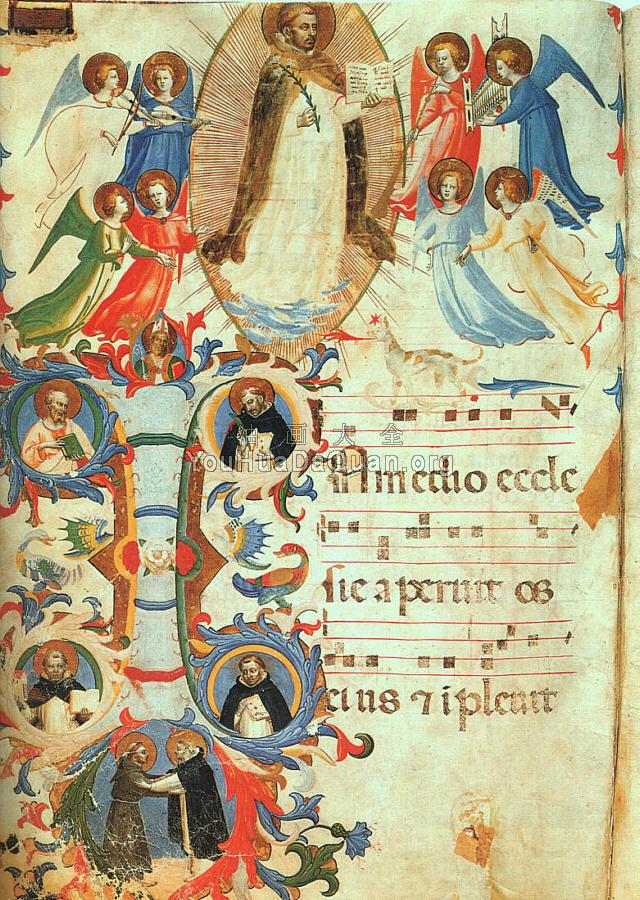 油画大全
YouHuaDaQuan.org
IN medio eccle
sie aperuit os
eius ⁊ ipleuit